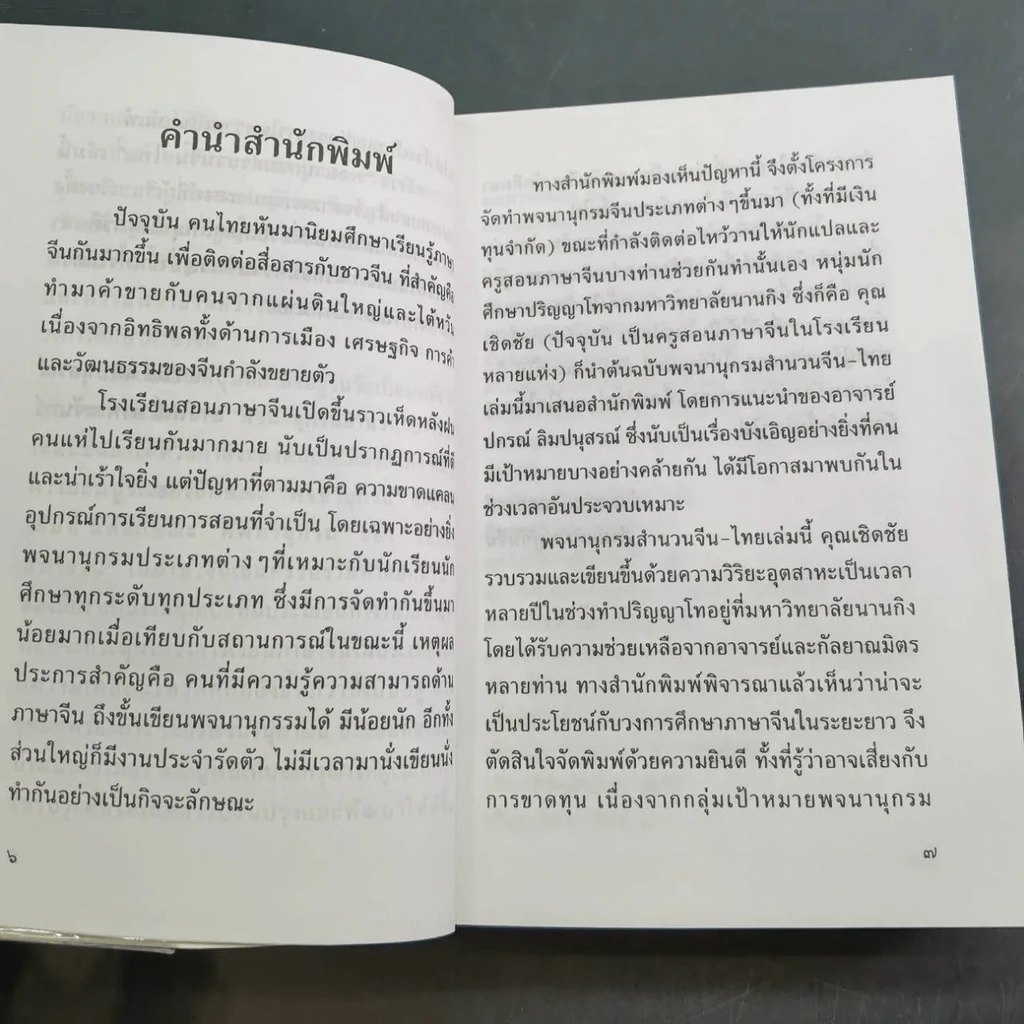 คำนำสำนักพิมพ์
ปัจจุบัน คนไทยหันมานิยมศึกษาเรียนรู้ภาษา
จีนกันมากขึ้น เพื่อติดต่อสื่อสารกับชาวจีน ที่สำคัญคือ
ทำมาค้าขายกับคนจากแผ่นดินใหญ่และไต้หวัน
เนื่องจากอิทธิพลทั้งด้านการเมือง เศรษฐกิจ การค้า
และวัฒนธรรมของจีนกำลังขยายตัว
โรงเรียนสอนภาษาจีนเปิดขึ้นราวเห็ดหลังฝน
คนแห่ไปเรียนกันมากมาย นับเป็นปรากฏการณ์ที่ดี
และน่าเร้าใจยิ่ง แต่ปัญหาที่ตามมาคือ ความขาดแคลน
อุปกรณ์การเรียนการสอนที่จำเป็น โดยเฉพาะอย่างยิ่ง
พจนานุกรมประเภทต่าง ๆที่เหมาะกับนักเรียนนัก
ศึกษาทุกระดับทุกประเภท ซึ่งมีการจัดทำกันขึ้นมา
น้อยมากเมื่อเทียบกับสถานการณ์ในขณะนี้ เหตุผล
ประการสำคัญคือ คนที่มีความรู้ความสามารถด้าน
ภาษาจีน ถึงขั้นเขียนพจนานุกรรมได้ มีน้อยนัก อีกทั้ง
ส่วนใหญ่ก็มีงานประจำรัดตัว ไม่มีเวลามานั่งเขียนนั่ง
ทำกันอย่างเป็นกิจจะลักษณะ
๖
ทางสำนักพิมพ์มองเห็นปัญหานี้ จึงตั้งโครงการ
จัดทำพจนานุกรมจีนประเภทต่าง ๆขึ้นมา (ทั้งที่มีเงิน
ทุนจำกัด) ขณะที่กำลังติดต่อไหว้วานให้นักแปลและ
ครูสอนภาษาจีนบางท่านช่วยกันทำนั้นเอง หนุ่มนัก
ศึกษาปริญญาโทจากมหาวิทยาลัยนานกิง ซึ่งก็คือ คุณ
เชิดชัย (ปัจจุบัน เป็นครูสอนภาษาจีนในโรงเรียน
หลายแห่ง) ก็นำต้นฉบับพจนานุกรมสำนวนจีน-ไทย
เล่มนี้มาเสนอสำนักพิมพ์ โดยการแนะนำของอาจารย์
ปกรณ์ ลิมปนุสรณ์ ซึ่งนับเป็นเรื่องบังเอิญอย่างยิ่งที่คน
มีเป้าหมายบางอย่างคล้ายกัน ได้มีโอกาสมาพบกันใน
ช่วงเวลาอันประจวบเหมาะ
พจนานุกรมสำนวนจีน-ไทยเล่มนี้ คุณเชิดชัย
รวบรวมและเขียนขึ้นด้วยความวิริยะอุตสาหะเป็นเวลา
หลายปีในช่วงทำปริญญาโทอยู่ที่มหาวิทยาลัยนานกิง
โดยได้รับความช่วยเหลือจากอาจารย์และกัลยาณมิตร
หลายท่าน ทางสำนักพิมพ์พิจารณาแล้วเห็นว่าน่าจะ
เป็นประโยชน์กับวงการศึกษาภาษาจีนในระยะยาว จึง
ตัดสินใจจัดพิมพ์ด้วยความยินดี ทั้งที่รู้ว่าอาจเสี่ยงกับ
การขาดทุน เนื่องจากกลุ่มเป้าหมายพจนานุกรม
๗